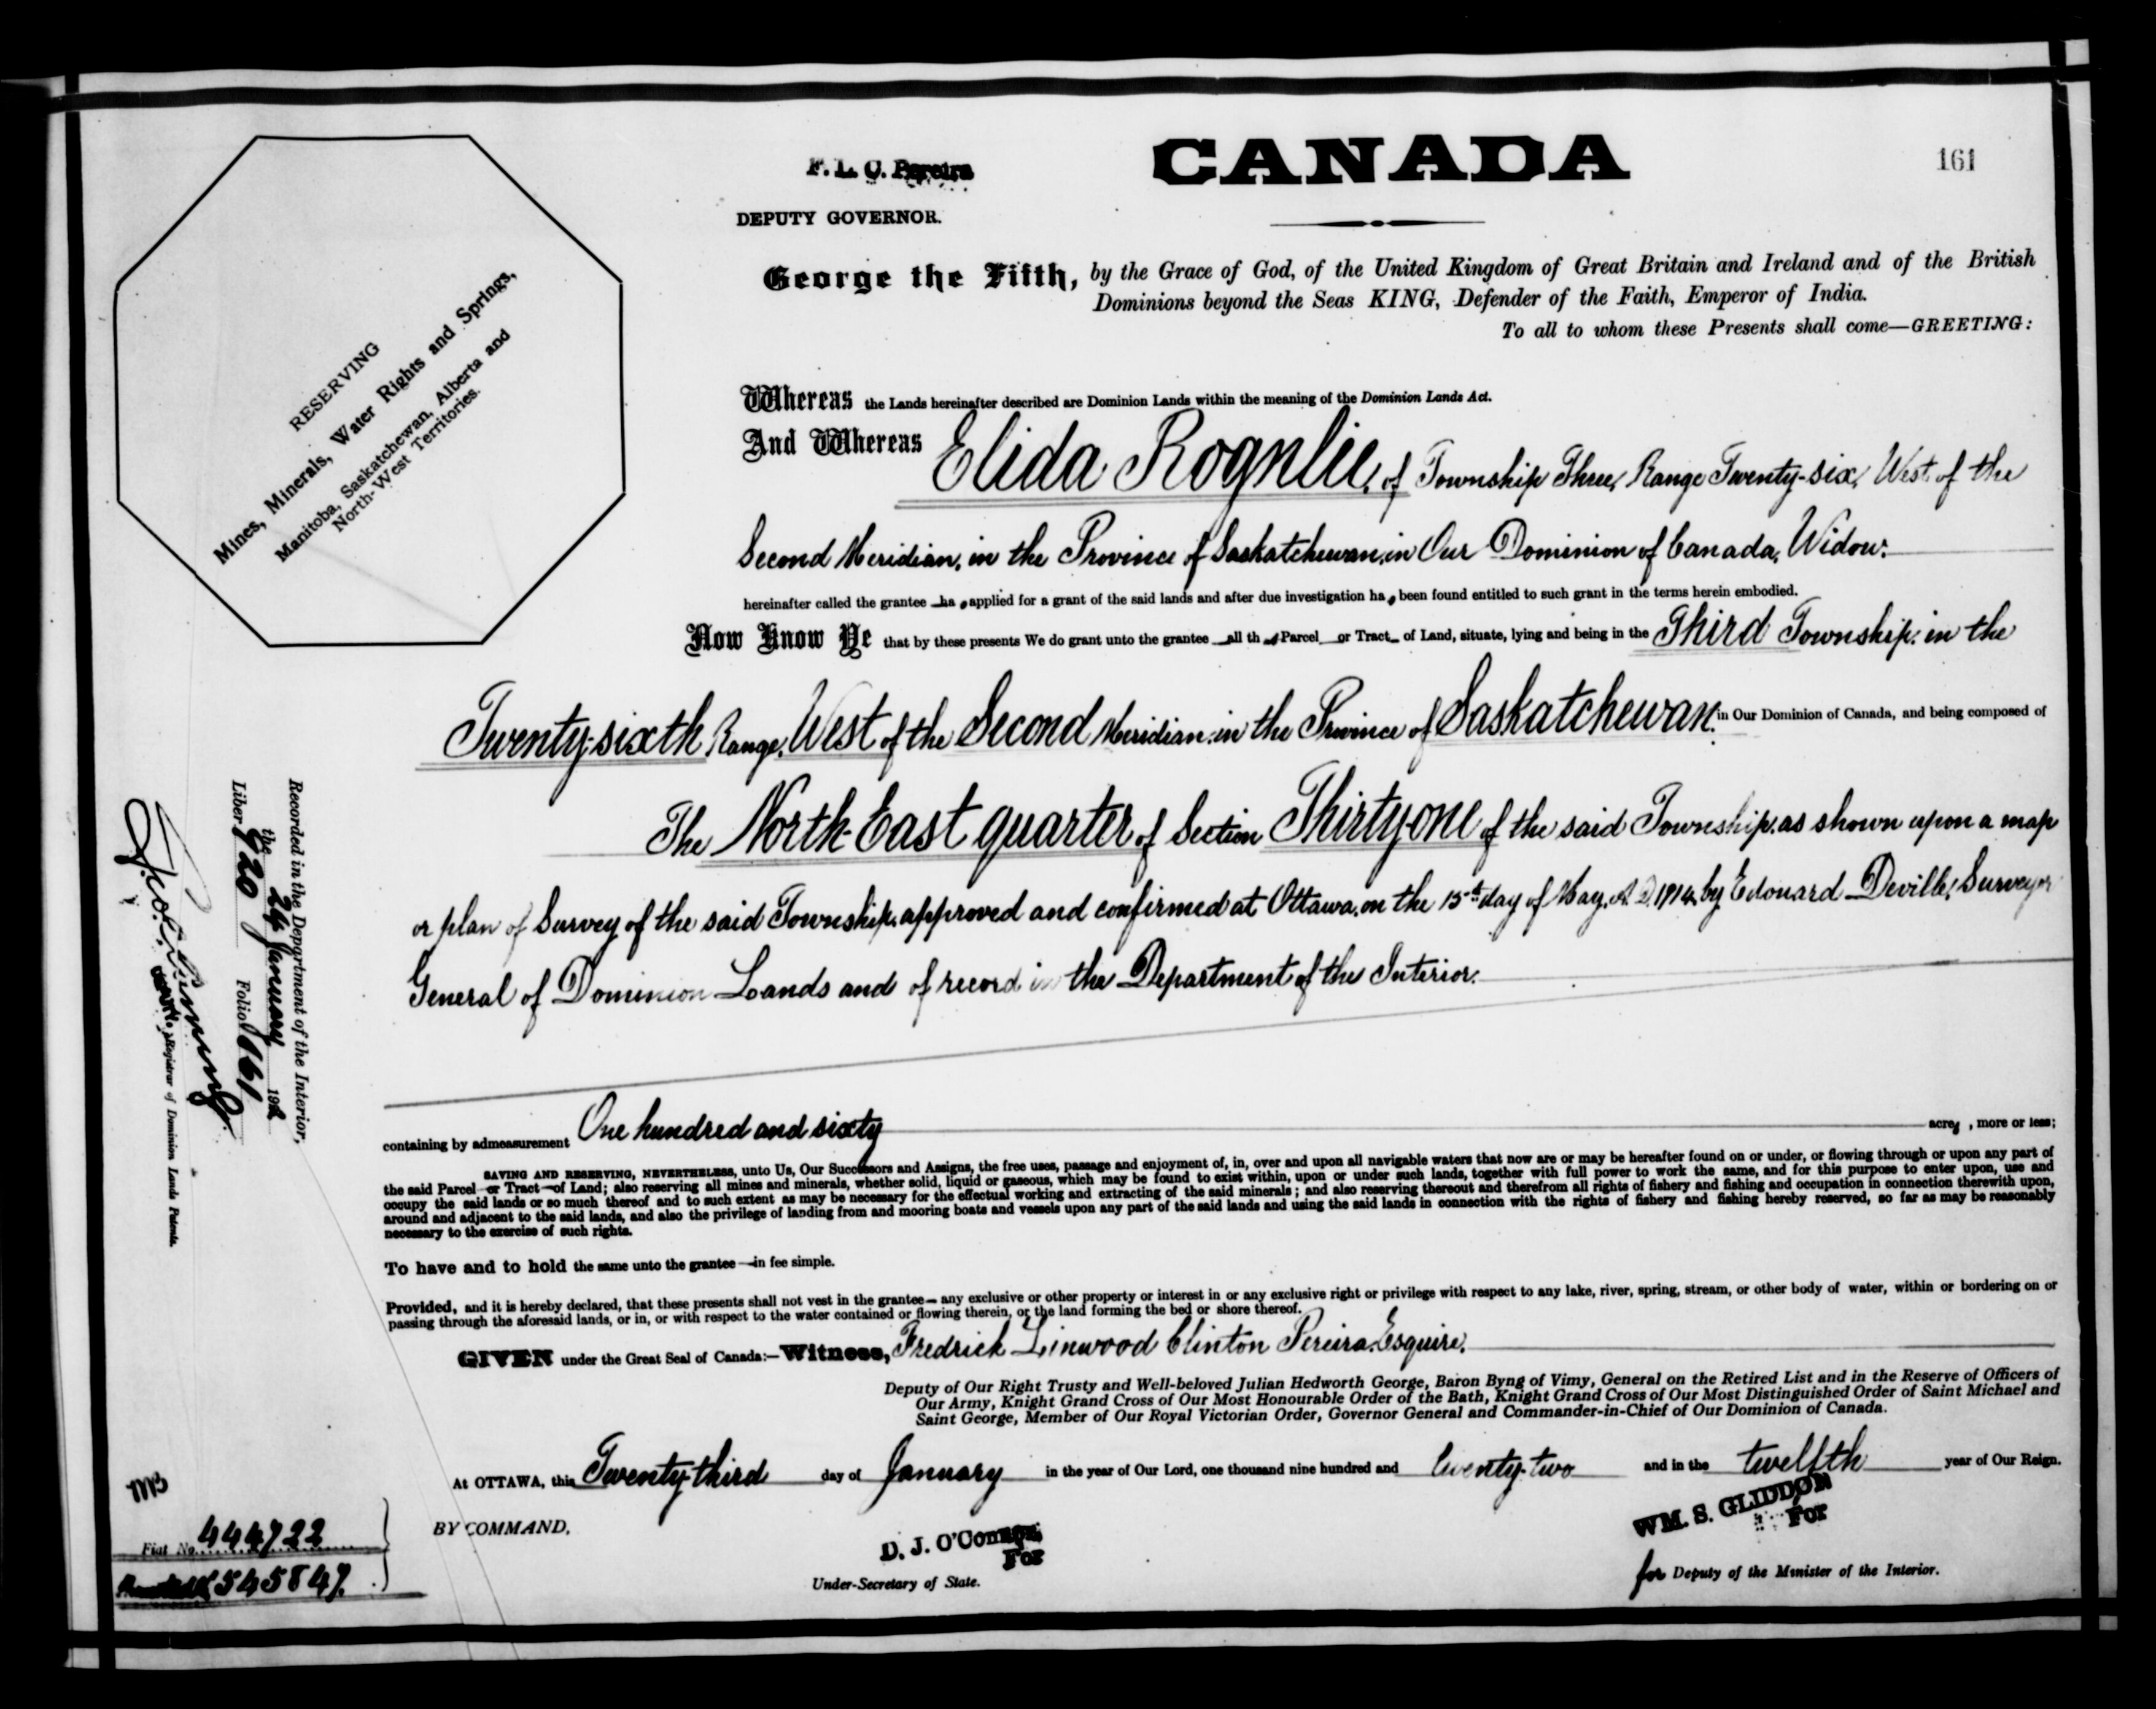 CANADA
161
F. L. C. Pereira
DEPUTY GOVERNOR.
George the Fifth, by the Grace of God, of the United Kingdom of Great Britain and Ireland and of the British
Dominions beyond the Seas KING, Defender of the Faith, Emperor of India.
To all to whom these Presents shall come—GREETING:
RESERVING
Mines, Minerals, Water Rights and Springs,
Manitoba, Saskatchewan, Alberta and
North-West Territories.
Whereas the Lands hereinafter described are Dominion Lands within the meaning of the Dominion Lands Act.
And Whereas Elida Rognlie, of Township Three, Range Twenty-six, West of the
Second Meridian, in the Province of Saskatchewan, in Our Dominion of Canada, Widow:
hereinafter called the grantee has applied for a grant of the said lands and after due investigation has been found entitled to such grant in the terms herein embodied.
Now Know Ye that by these presents We do grant unto the grantee all that Parcel or Tract of Land, situate, lying and being in the Third Township, in the
Twenty-sixth Range, West of the Second Meridian, in the Province of Saskatchewan, in Our Dominion of Canada, and being composed of
The North-East quarter of Section Thirty-one of the said Township, as shown upon a map
or plan of Survey of the said Township, approved and confirmed at Ottawa, on the 15th day of May, A.D. 1914, by Edouard Deville, Surveyor
General of Dominion Lands and of record in the Department of the Interior.
containing by admeasurement One hundred and sixty acres, more or less;
SAVING AND RESERVING, NEVERTHELESS, unto Us, Our Successors and Assigns, the free uses, passage and enjoyment of, in, over and upon all navigable waters that now are or may be hereafter found on or under, or flowing through or upon any part of
the said Parcel or Tract of Land; also reserving all mines and minerals, whether solid, liquid or gaseous, which may be found to exist within, upon or under such lands, together with full power to work the same, and for this purpose to enter upon, use and
occupy the said lands or so much thereof and to such extent as may be necessary for the effectual working and extracting of the said minerals; and also reserving thereout and therefrom all rights of fishery and fishing and occupation in connection therewith upon,
around and adjacent to the said lands, and also the privilege of landing from and mooring boats and vessels upon any part of the said lands and using the said lands in connection with the rights of fishery and fishing hereby reserved, so far as may be reasonably
necessary to the exercise of such rights.
To have and to hold the same unto the grantee in fee simple.
Provided, and it is hereby declared, that these presents shall not vest in the grantee any exclusive or other property or interest in or any exclusive right or privilege with respect to any lake, river, spring, stream, or other body of water, within or bordering on or
passing through the aforesaid lands, or in, or with respect to the water contained or flowing therein, or the land forming the bed or shore thereof.
GIVEN under the Great Seal of Canada:—Witness, Fredrick Linwood Clinton Pereira, Esquire,
Deputy of Our Right Trusty and Well-beloved Julian Hedworth George, Baron Byng of Vimy, General on the Retired List and in the Reserve of Officers of
Our Army, Knight Grand Cross of Our Most Honourable Order of the Bath, Knight Grand Cross of Our Most Distinguished Order of Saint Michael and
Saint George, Member of Our Royal Victorian Order, Governor General and Commander-in-Chief of Our Dominion of Canada.
At OTTAWA, this Twenty-third day of January in the year of Our Lord, one thousand nine hundred and twenty-two and in the twelfth year of Our Reign.
BY COMMAND,
D. J. O'Connor
For
Under-Secretary of State.
WM. S. GLIDDON
For
for Deputy of the Minister of the Interior.
Recorded in the Department of the Interior,
the 24 January 1922
Liber 920 Folio 161
Registrar of Dominion Lands Patents.
Fiat No. 444722
545847